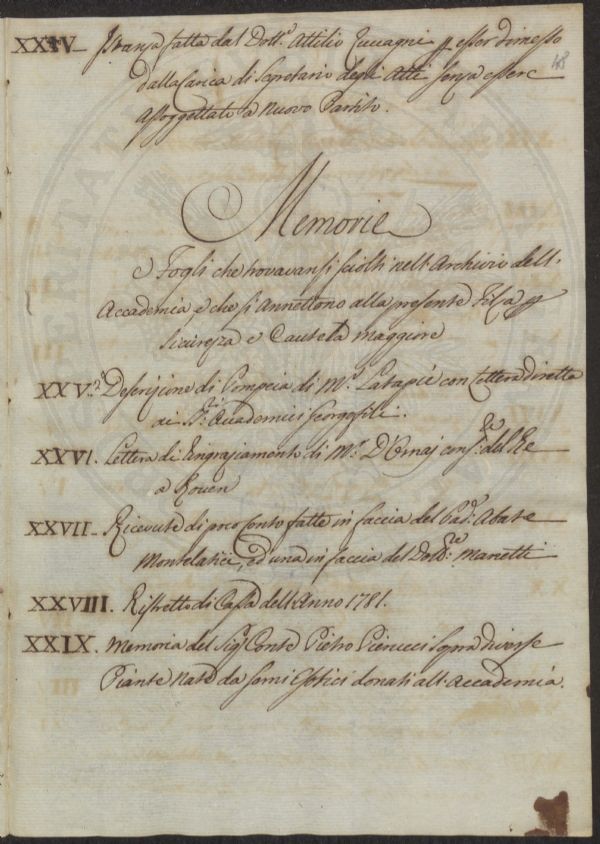 XXIV_ Istanza fatta dal Dott.e Attilio Zuccagni p esser dimesso
dalla Carica di Segretario degli Atti senza essere
assoggettato a Nuovo Partito.
48
Memorie
e Fogli che trovavansi sciolti nell'Archivio dell'
Accademia, e che si Annettono alla presente Filza p
sicurezza e Cautela maggiore
XXV. Descrizione di Pompeia di M.r Latapie con Lettera diretta
ai SS.ri Accademici Georgofili.
XXVI. Lettera di Ringraziamento di M.r D'Ornaj del Re
a Rouen
XXVII_ Ricevute di poco Conto fatte in faccia del Pad.e Abate
Montelatici, ed una in faccia del Dott.re Manetti
XXVIII. Ristretto di Cassa dell'Anno 1781.
XXIX. Memoria del Sig.r Conte Pietro Pierucci sopra diverse
Piante nate da semi Esotici donati all'Accademia.